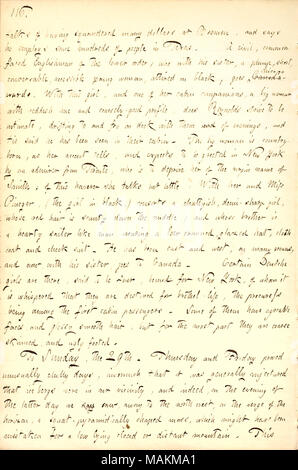 116.
talks of having squandered many dollars at Bremen, and says
he employs some hundreds of people in Texas. A civil, common
faced Englishman of the lower order; also with his sister, a plump, silent,
conversable, amiable young woman, attired in black; goes Canada-
wards. With this girl, and one of her cabin companions, a big woman
with reddish hair and coarsely good profile does Reynolds strive to be
intimate, drifting to and fro on deck with them now of evenings, and
tis said he has been seen in their cabin. The big woman is country-
born, as her accent tells, and expects to be greeted in New York
by an adviser from Toronto, who is to deprive her of the virgin name of
; of this however she talks not little. With her and Miss
Pinyer, (the girl in black,) consorts a sharp girl,
whose red hair is down the middle; and whose brother is
a hearty sailor like man wearing a low crowned glazed hat, cloth
coat and check suit. He has been east and west, on many seas,
and now with his sister goes to Canada. Certain Deutsche
girls are there, said to be four, bound for New York, of whom it
is whispered that they are destined for brothel life, the
being among the first cabin passengers. Some of them have agreable
faces and glossy smooth hair, but for the most part they are coarse
skinned and ugly footed.
To Sunday, the 29th. Thursday and Friday proved
unusually chilly days, insomuch that it was generally conjectured
that icebergs were in our vicinity, and indeed, on the evening of
the latter day we saw away to the north west, on the verge of the
horizon, a squat, pyramidically shaped mass, which might have been
mistaken for a low lying cloud or distant mountain. This
alamy
MAKMA1